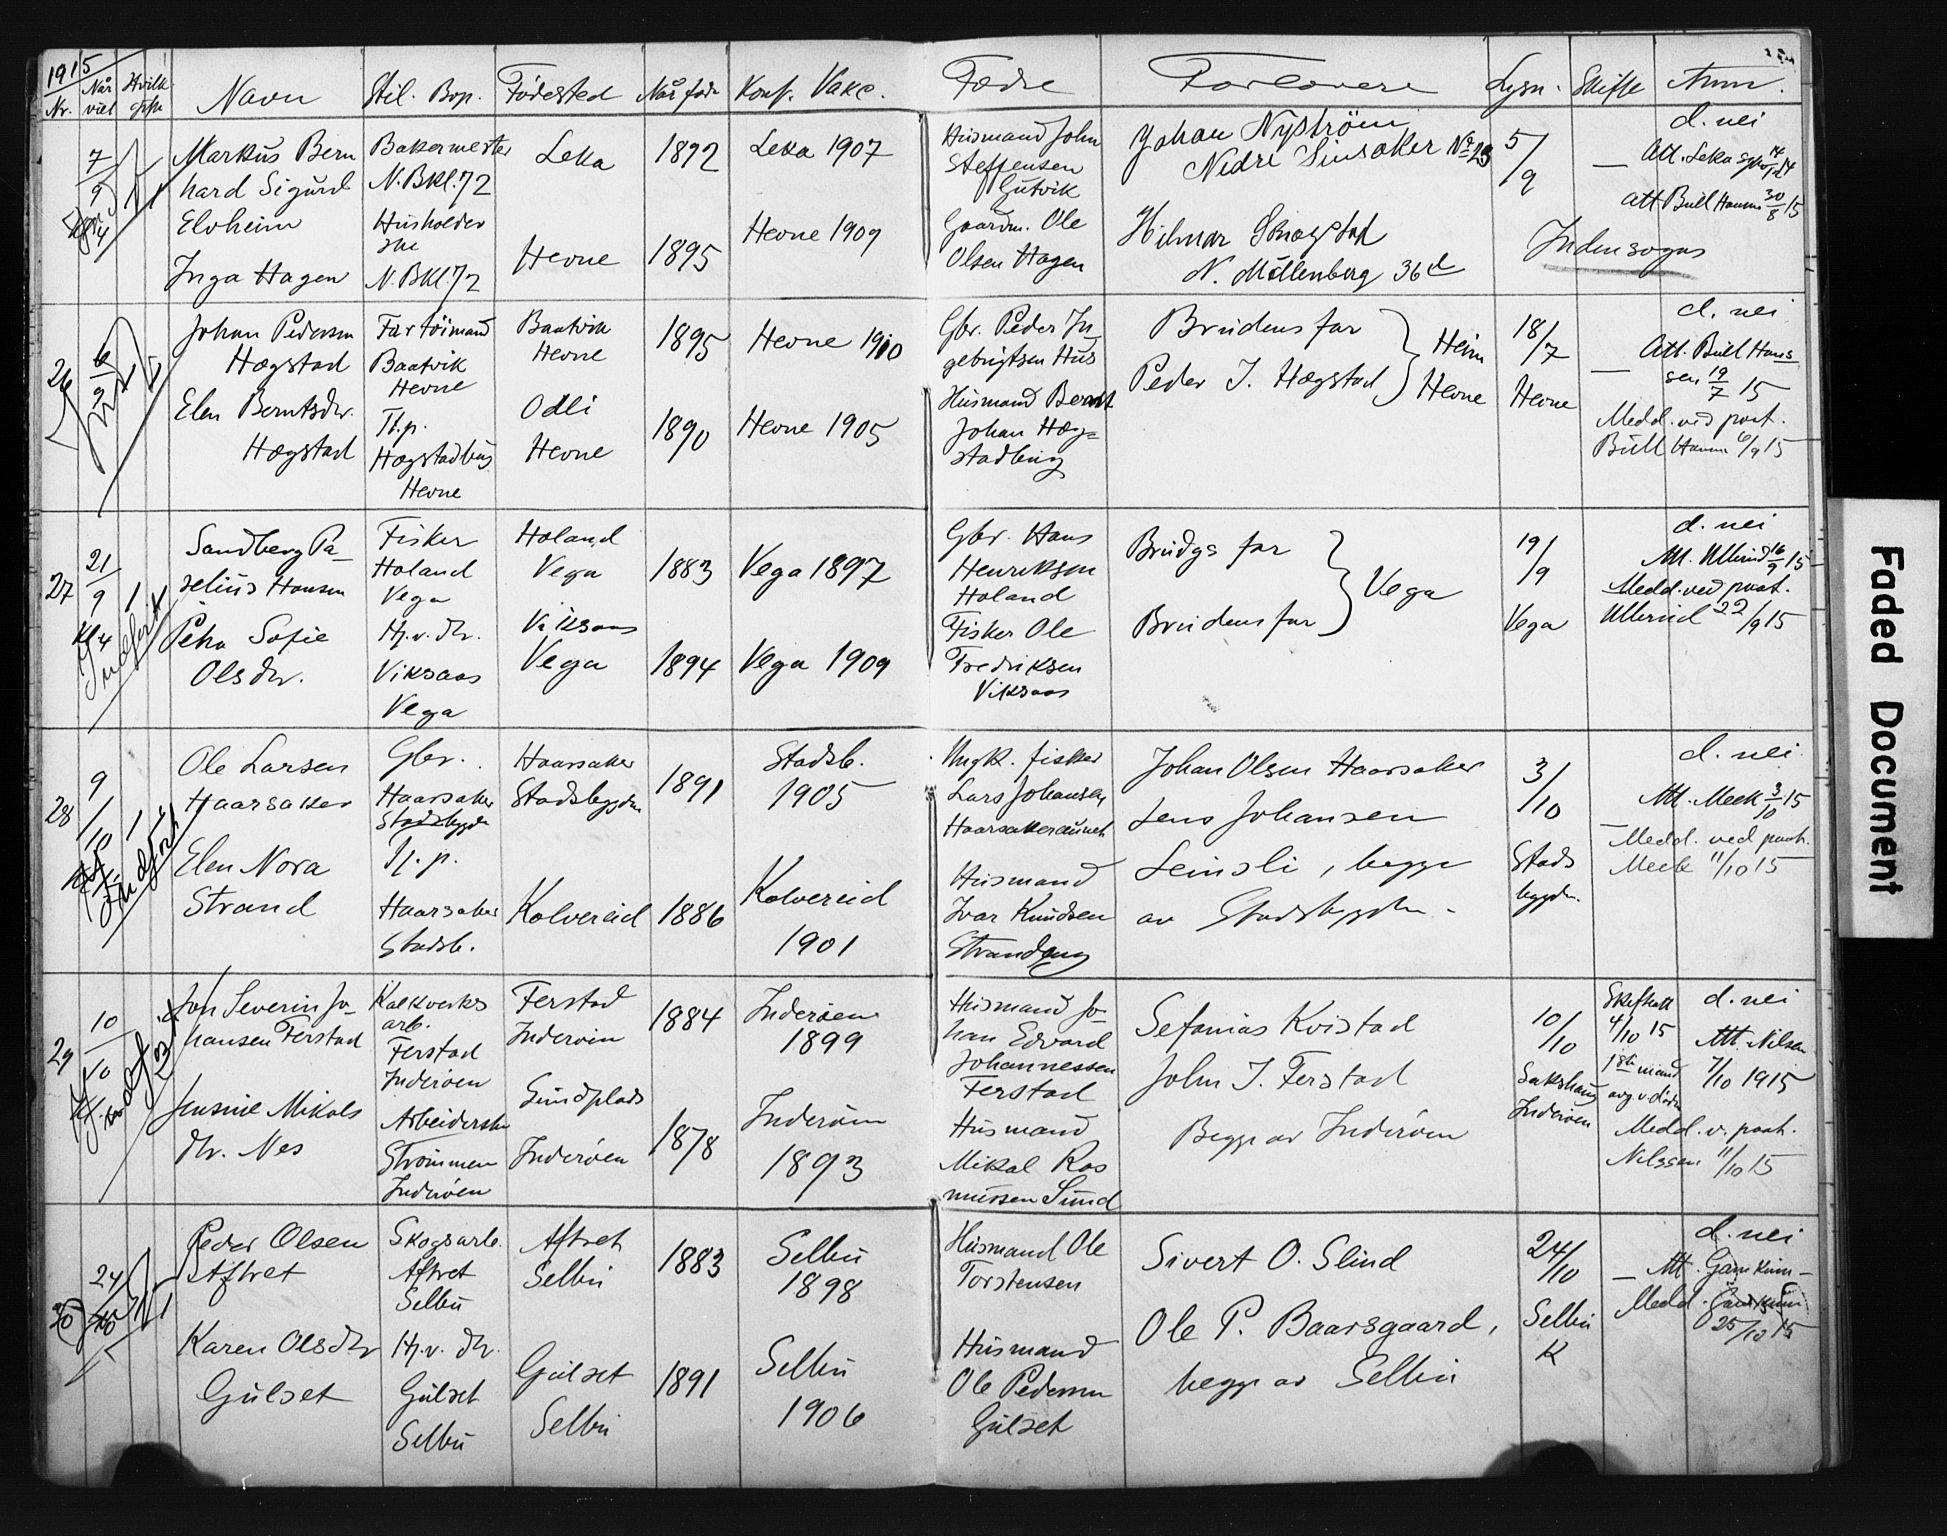 1915
Nr. Når viet Hvilk gifte Navn Stil. Bop. Fødested Når født Konf. Vakc. Fædre Forlovere Lysn. Skifte Anm.
7/9
Markus Bern
hard Sigurd
Elvheim
Inga Hagen
Bakermester
N. Bkl. 72
Husholder
ske
N. Bkl. 72
Leka
Hevne
1892
1895
Leka 1907
Hevne 1909
Husmand John
Steffensen
Gutvik
Gaardm. Ole
Olsen Hagen
Johan Nyström
Nedre Sinsaker No 23
Hilmar
N. Møllenberg 36
5/9
—
d. nei
Att. Leka
Att Bull Hansen 30/8 15
Indensogns
26
6/9
Johan Pedersen
Hægstad
Elen Berntsdtr.
Hægstad
Fartøimand
Baatvik
Hevne
Tj.p.
Hægstadbug
Hevne
Baatvik
Hevne
Odli
Hevne
1895
1890
Hevne 1910
Hevne 1905
Gbr. Peder In
gebrigtsen Hus
Husmand Bernt
Johan Hæg=
stadbug
Brudens far
Peder J. Hægstad
Heim
Hevne
18/7
Hevne
—
d. nei
Att. Bull Han
sen 19/7 15
Medd. ved post.
Bull Hansen 6/9 15
27
21/9
Kl 4
1
Indført
Sandberg Pa
selius Hansen
Petra Sofie
Olsdtr.
Fisker
Holand
Vega
Hj.v. dtr.
Viksaas
Vega
Holand
Vega
Viksaas
Vega
1883
1894
Vega 1897
Vega 1909
Gbr. Hans
Henriksen
Holand
Fisker Ole
Fredriksen
Viksaas
Brudgs far
Brudens far
Vega
19/9
Vega
d. nei
Att. Ullerud 16/9 15
Medd. ved post.
Ullerud 22/9 15
28
9/10
1
Indført
Ole Larsen
Haarsaker
Elen Nora
Strand
Gbr.
Haarsaker
Stadsbygden
Tj.p.
Haarsaker
Stadsb.
Haarsaker
Stadsbygden
Kolvereid
1891
1886
Stadsb.
1905
Kolvereid
1901
Ungk. fisker
Lars Johansen
Haarsakeraunet
Husmand
Ivar Knudsen
Strandeng
Johan Olsen Haarsaker
Jens Johansen
Leinsli, begge
av Stadsbygden
3/10
Stads
bygden.
d. nei
Att. Meek 3/10 15
— Medd. ved post.
Meek 11/10 15
29
10/10
Jon Severin Jo
hansen Ferstad
Jensine Mikals
dtr. Nes
Kalkverks
arb.
Ferstad
Inderøen
Arbeiderske
Strømmen
Inderøen
Ferstad
Inderøen
Sundplads
Inderøen
1884
1878
Inderøen
1899
Inderøen
1893
Husmand Jo
han Edvard
Johannessen
Ferstad
Husmand
Mikal Ras
mussen Sund
Sefanias Kvistad
John J. Ferstad
Begge av Inderøen
10/10
Sakshaug
Inderøen
Skifteatt
4/10 15
1ste mand
d. nei
Att. Nilsen
7/10 1915
Medd. v. post.
Nilssen 11/10 15
30
24/10
Peder Olsen
Aftret
Karen Olsdtr
Gulset
Skogsarb.
Aftret
Selbu
Hj.v. dtr.
Gulset
Selbu
Aftret
Selbu
Gulset
Selbu
1883
1891
Selbu
1898
Selbu
1906
Husmand Ole
Torstensen
Husmand
Ole Pedersen
Gulset
Sivert O. Slind
Ole P. Baarsgaard,
begge av Selbu
24/10
Selbu
K
d. nei
— Att.
Medd.
25/10 15
Faded Document